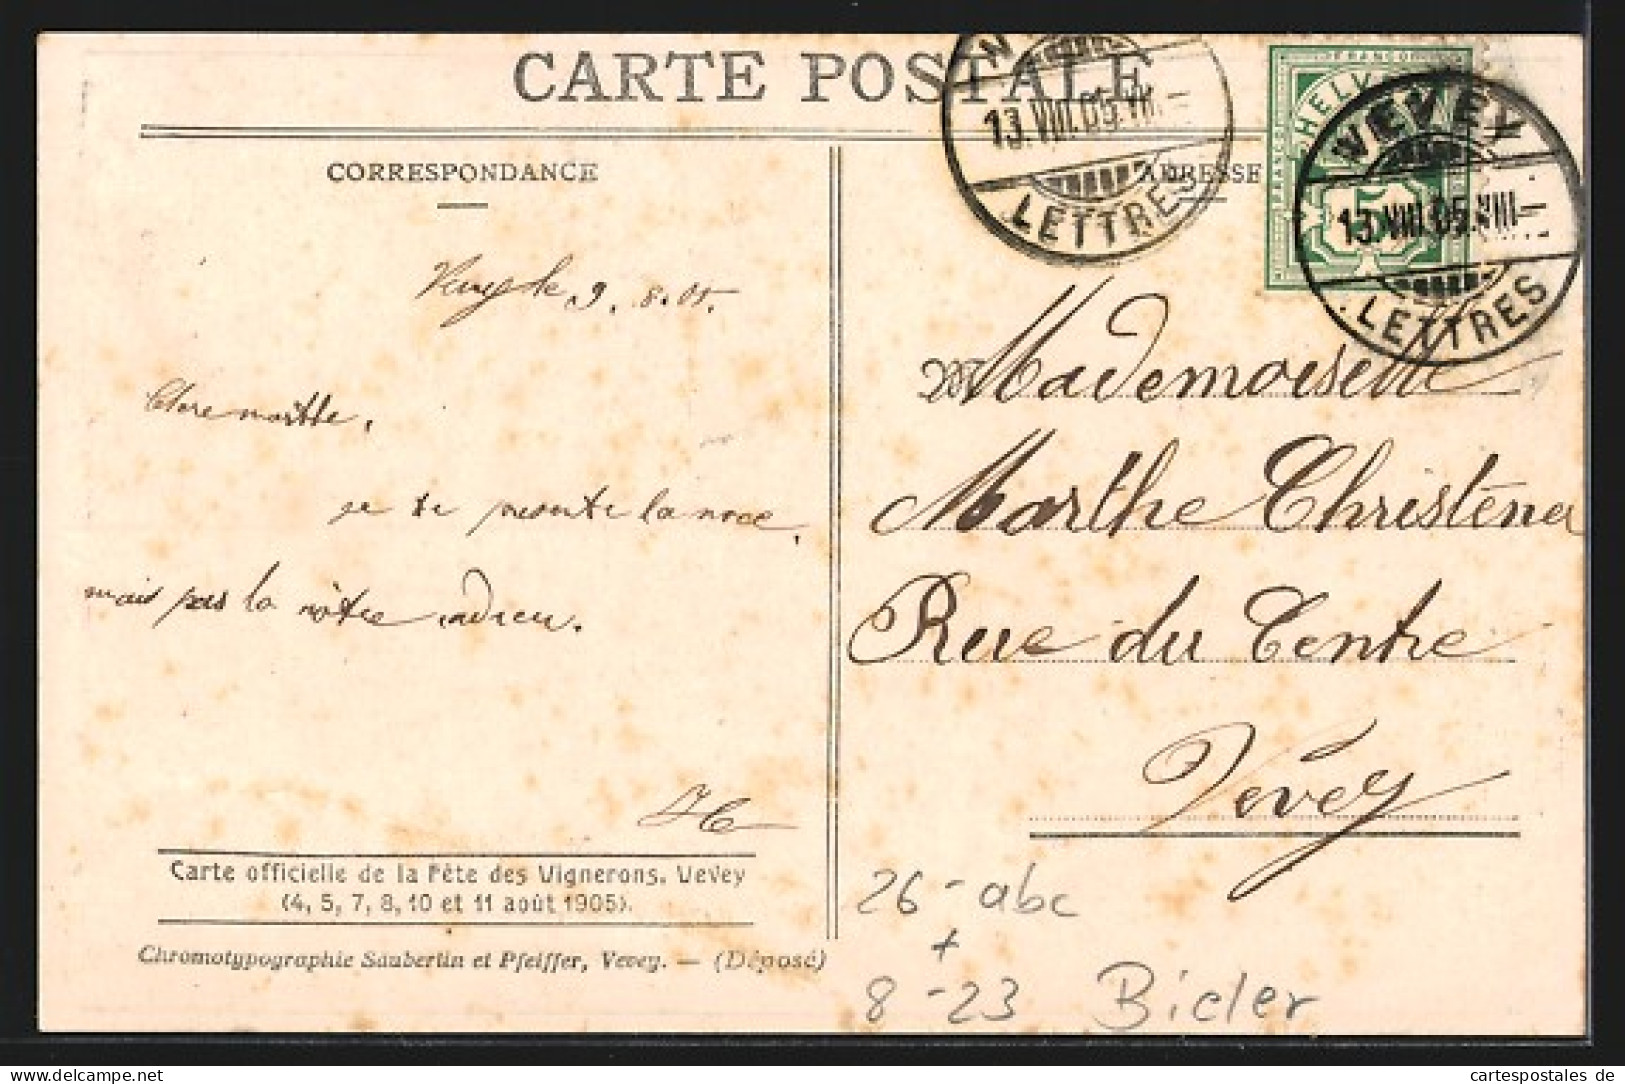 CARTE POSTALE
CORRESPONDANCE
Vevey le 9. 8. 05.
Chere marthe,
je te présente la noce,
mais pas la nôtre, adieu.
Carte officielle de la Fête des Vignerons, Vevey
(4, 5, 7, 8, 10 et 11 août 1905).
Chromotypographie Säuberlin et Pfeiffer, Vevey. — (Déposé)
13.VIII.05.VII
LETTRES
ADRESSE
FRANCO
HELV
FRANCO
5
VEVEY
13.VIII.05.VIII
LETTRES
M Mademoiselle
Marthe Christéner
Rue du Centre
Vevey
26-abc
+
8-23 Bieler
cartespostales de